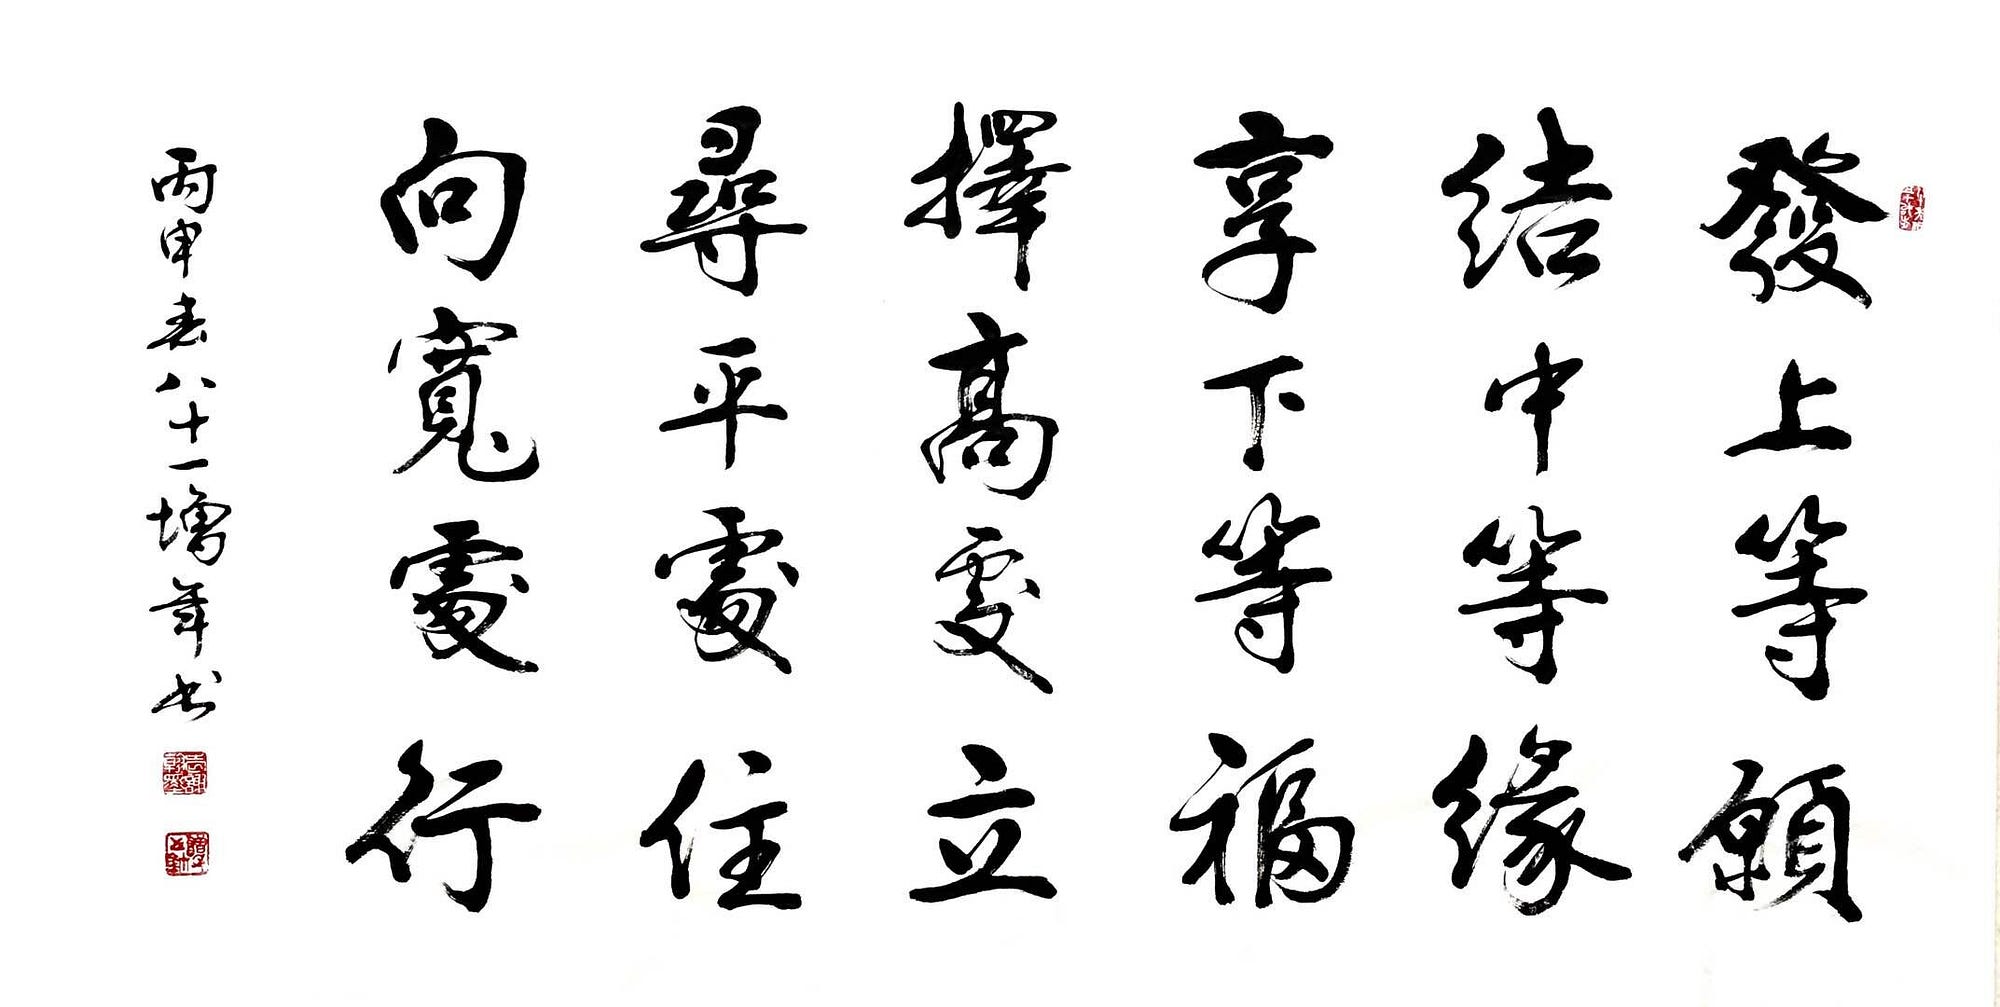 發上等願
結中等緣
享下等福
擇高處立
尋平處住
向寬處行
丙申春八十一增年书